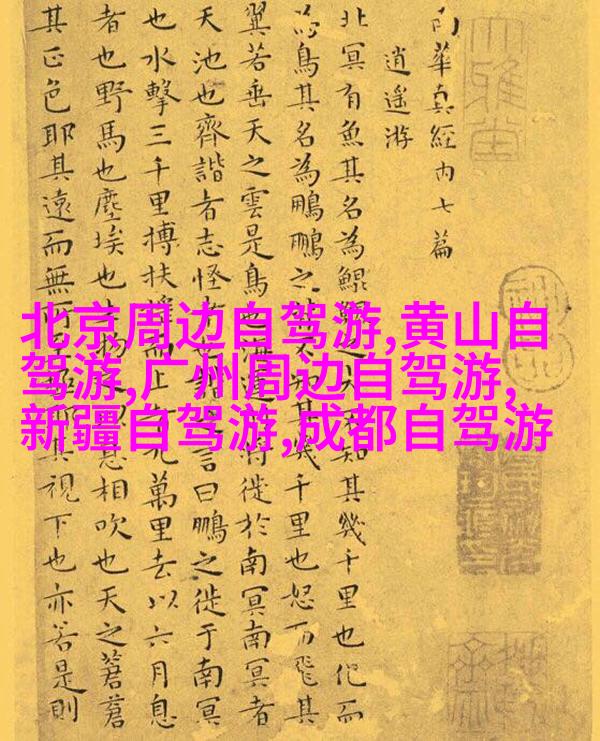 南華真經内七篇
逍遥游
北冥有魚其名為鯤鯤之大不知其幾千里也化而
為鳥其名為鵬鵬之背不知其幾千里也怒而飛其
翼若垂天之雲是鳥也海運將徙於南冥南冥者
天池也齊諧者志怪者也諧之言曰鵬之徙于南冥
也水擊三千里搏扶搖而上者九萬里去以六月息
者也野馬也塵埃也生物之息相吹也天之蒼蒼
其正色耶其遠而無所至極其視下也亦若是則
北京周边自驾游,黄山自
驾游,广州周边自驾游,
新疆自驾游,成都自驾游